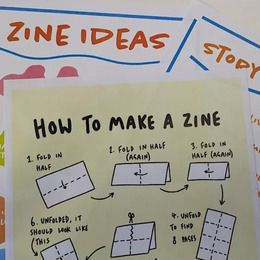 ZINE IDEAS
STORY
HOW TO MAKE A ZINE
1. FOLD IN
HALF
2. FOLD IN HALF
(AGAIN)
3. FOLD IN
HALF (AGAIN)
6. UNFOLDED, IT
SHOULD LOOK LIKE
THIS
4. UNFOLD
TO FIND
8 PAGES